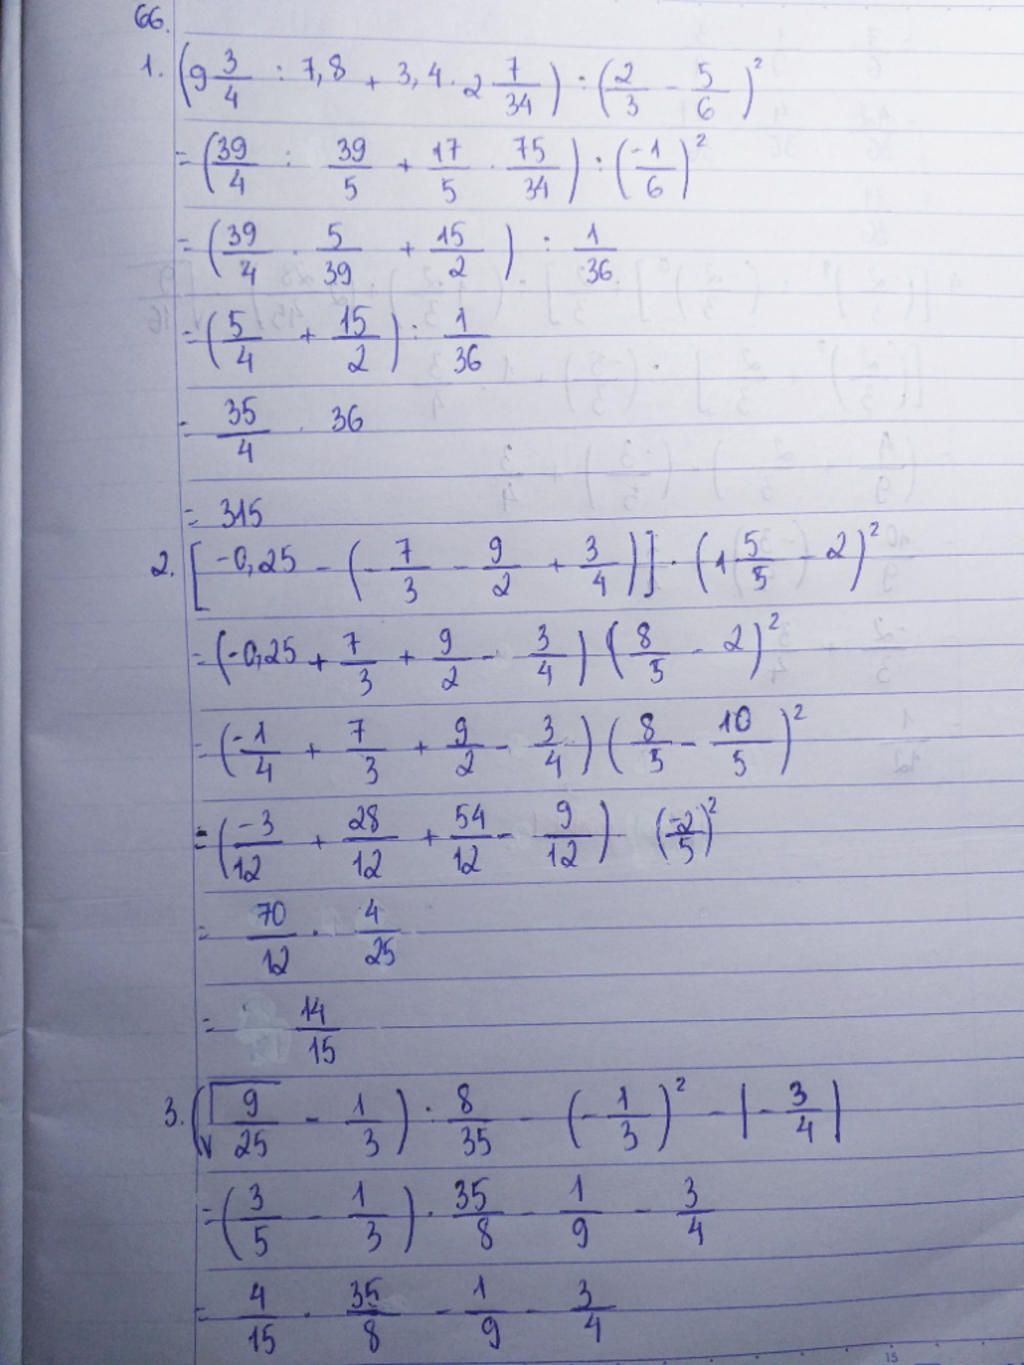 66.
1. (9 3/4 : 7,8 + 3,4 · 2 7/34) : (2/3 - 5/6)²
= (39/4 : 39/5 + 17/5 · 75/34) : (-1/6)²
= (39/4 · 5/39 + 15/2) : 1/36
= (5/4 + 15/2) : 1/36
= 35/4 · 36
= 315
2. [-0,25 - (-7/3 - 9/2 + 3/4)] · (1 5/5 - 2)²
= (-0,25 + 7/3 + 9/2 - 3/4) (8/5 - 2)²
= (-1/4 + 7/3 + 9/2 - 3/4) (8/5 - 10/5)²
= (-3/12 + 28/12 + 54/12 - 9/12) (-2/5)²
= 70/12 · 4/25
= 14/15
3. (√9/25 - 1/3) : 8/35 - (-1/3)² - |-3/4|
= (3/5 - 1/3) · 35/8 - 1/9 - 3/4
= 4/15 · 35/8 - 1/9 - 3/4
15